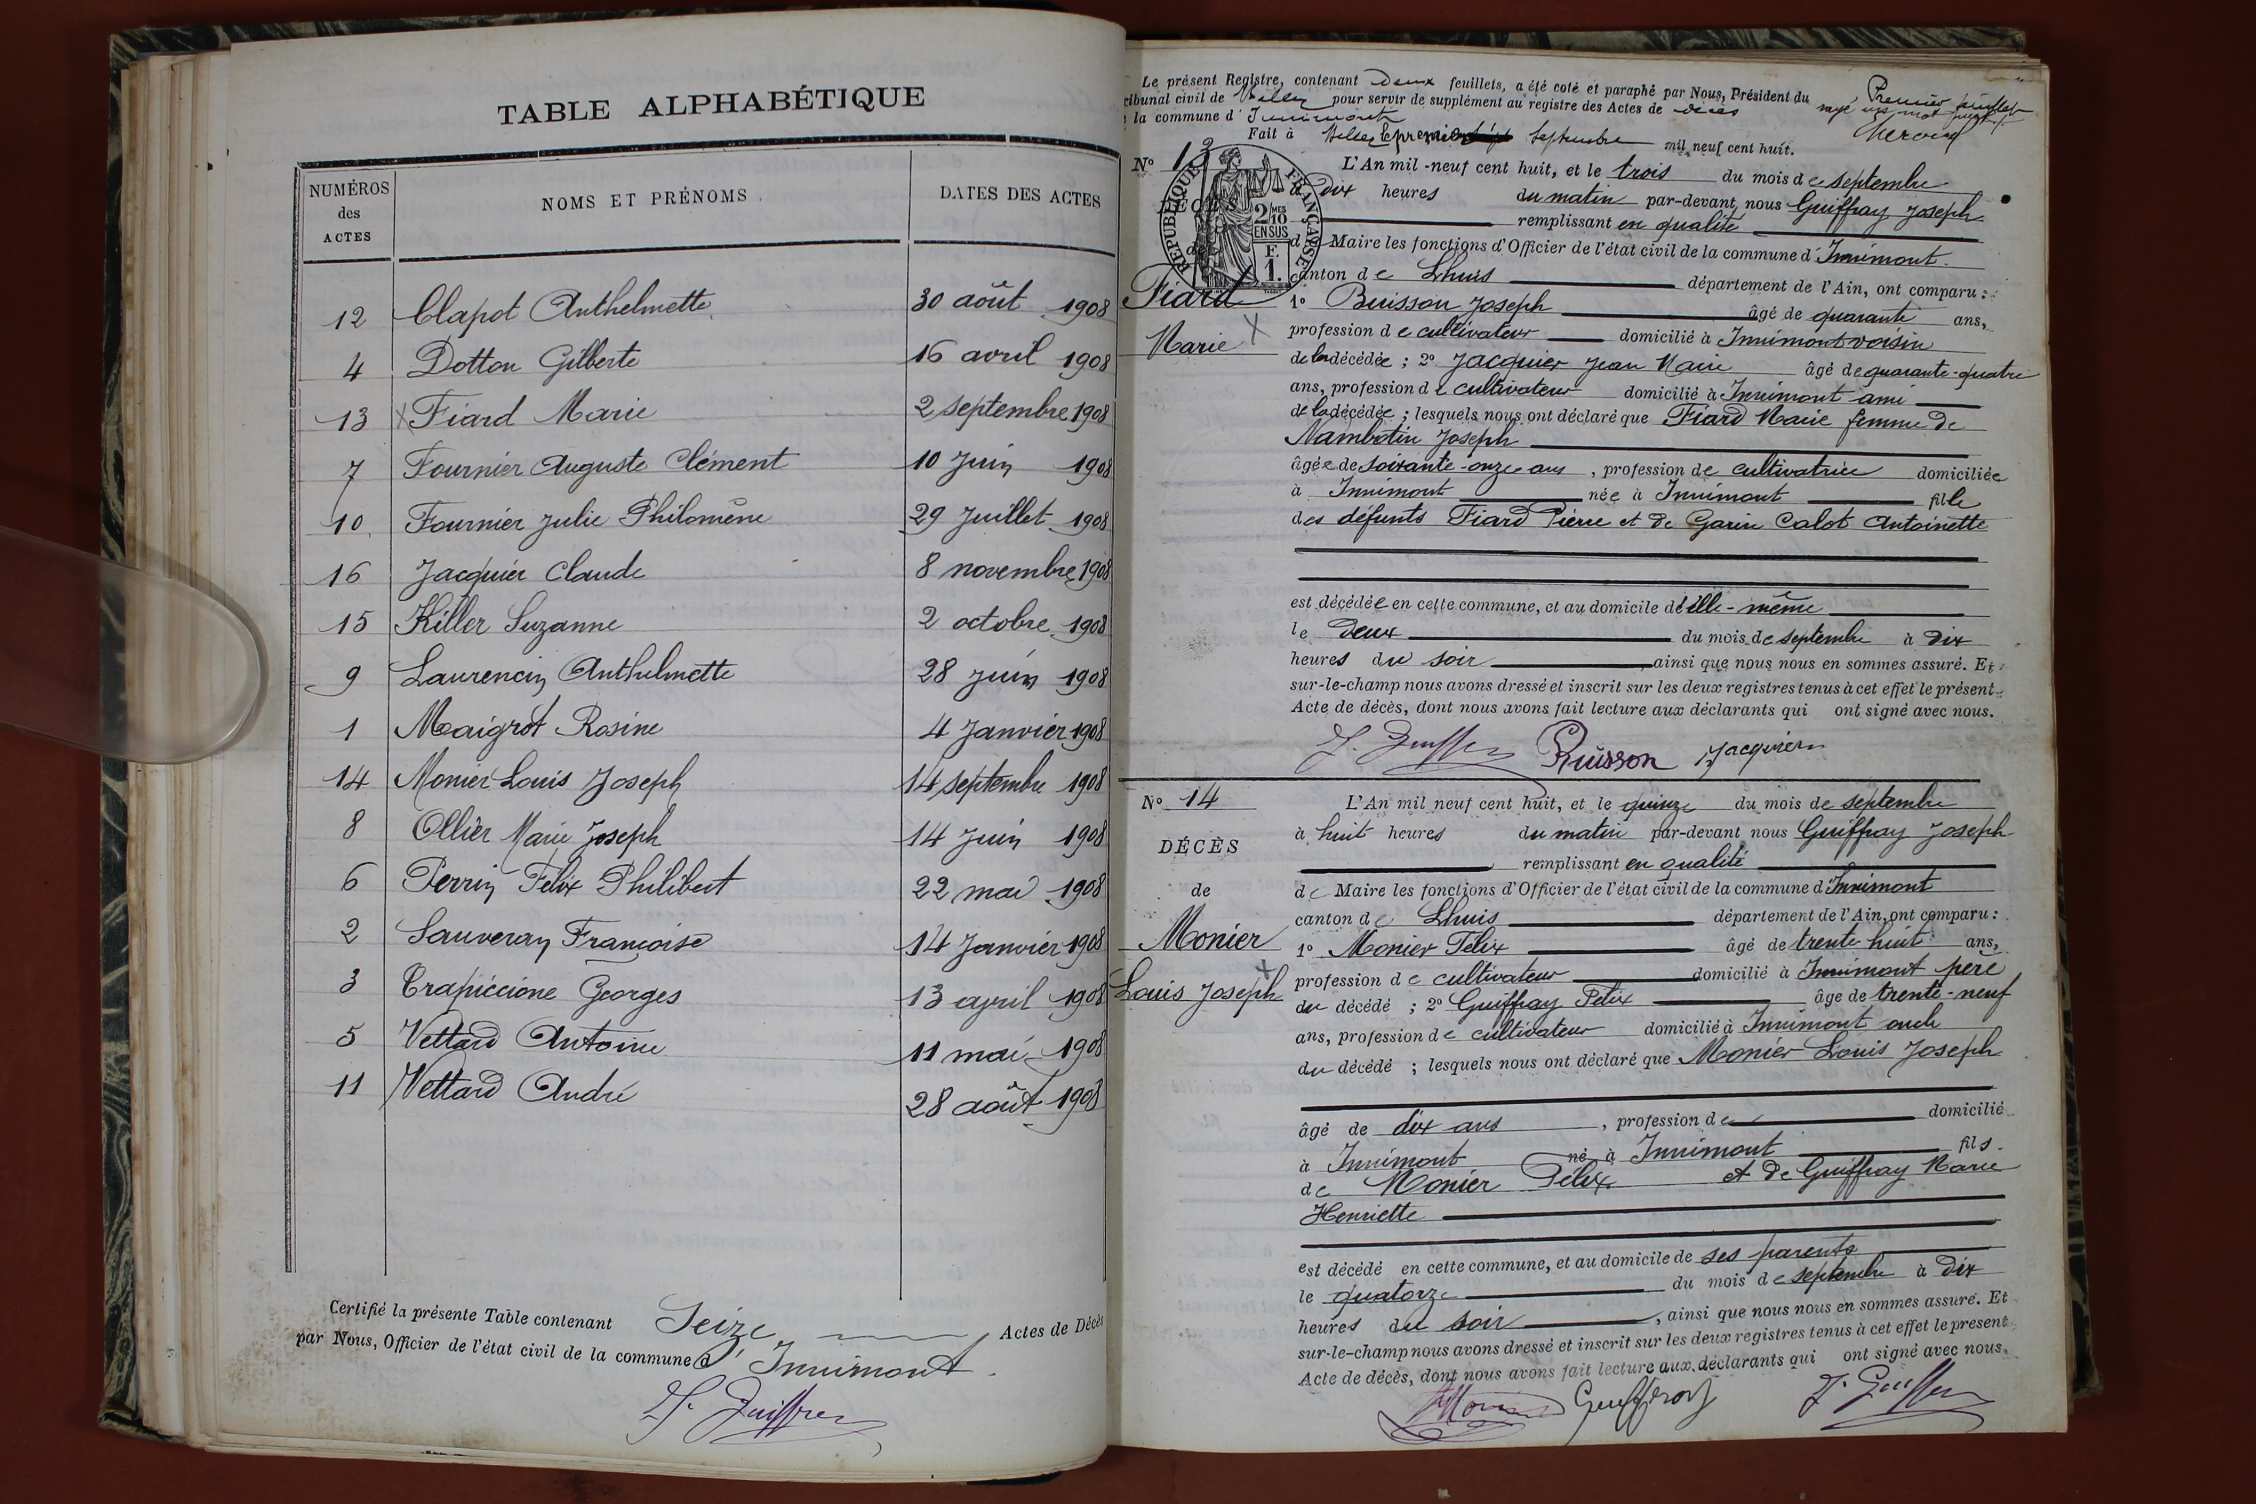 TABLE ALPHABÉTIQUE
NUMÉROS des ACTES
NOMS ET PRÉNOMS
DATES DES ACTES
12 Clapot Anthelmette 30 août 1908
4 Dotton Gilberte 16 avril 1908
13 Fiard Marie 2 septembre 1908
7 Fournier Auguste Clément 10 Juin 1908
10 Fournier Julie Philomène 29 Juillet 1908
16 Jacquier Claude 8 novembre 1908
15 Killer Suzanne 2 octobre 1908
9 Laurencin Anthelmette 28 juin 1908
1 Maigrot Rosine 4 Janvier 1908
14 Monier Louis Joseph 14 septembre 1908
8 Ollier Marie Joseph 14 Juin 1908
6 Perrin Félix Philibert 22 mai 1908
2 Sauveray Françoise 14 Janvier 1908
3 Trapiccione Georges 13 avril 1908
5 Vettard Antoine 11 mai 1908
11 Vettard André 28 août 1908
Certifié la présente Table contenant Seize Actes de Décès
par Nous, Officier de l'état civil de la commune d'Innimont.
J. Guiffray
Le présent Registre, contenant deux feuillets, a été coté et paraphé par Nous, Président du
tribunal civil de Belley pour servir de supplément au registre des Actes de décès
la commune d'Innimont
Premier feuillet
rayé un mot
Fait à Belley le premier septembre mil neuf cent huit.
No 13
RÉPUBLIQUE FRANÇAISE
2 MES 10 EN SUS
F. 1.
DÉCÈS
de
Fiard
Marie
L'An mil-neuf cent huit, et le trois du mois de septembre
à dix heures du matin par-devant nous Guiffray Joseph
remplissant en qualité
de Maire les fonctions d'Officier de l'état civil de la commune d'Innimont
canton de Lhuis département de l'Ain, ont comparu :
1o Buisson Joseph âgé de quarante ans,
profession de cultivateur domicilié à Innimont voisin
de la décédée ; 2o Jacquier Jean Marie âgé de quarante-quatre
ans, profession de cultivateur domicilié à Innimont ami
de la décédée ; lesquels nous ont déclaré que Fiard Marie femme de
Nambotin Joseph
âgée de soixante-onze ans, profession de cultivatrice domiciliée
à Innimont née à Innimont fille
des défunts Fiard Pierre et de Garin Calot Antoinette
est décédée en cette commune, et au domicile d'elle-même
le deux du mois de septembre à dix
heures du soir, ainsi que nous nous en sommes assuré. Et
sur-le-champ nous avons dressé et inscrit sur les deux registres tenus à cet effet le présent
Acte de décès, dont nous avons fait lecture aux déclarants qui ont signé avec nous.
J. Guiffray Buisson Jacquier
No 14
DÉCÈS
de
Monier
Louis Joseph
L'An mil neuf cent huit, et le quinze du mois de septembre
à huit heures du matin par-devant nous Guiffray Joseph
remplissant en qualité
de Maire les fonctions d'Officier de l'état civil de la commune d'Innimont
canton de Lhuis département de l'Ain, ont comparu :
1o Monier Félix âgé de trente-huit ans,
profession de cultivateur domicilié à Innimont père
du décédé ; 2o Guiffray Félix âgé de trente-neuf
ans, profession de cultivateur domicilié à Innimont oncle
du décédé ; lesquels nous ont déclaré que Monier Louis Joseph
âgé de dix ans, profession de domicilié
à Innimont né à Innimont fils
de Monier Félix et de Guiffray Marie
Henriette
est décédé en cette commune, et au domicile de ses parents
le quatorze du mois de septembre à dix
heures du soir, ainsi que nous nous en sommes assuré. Et
sur-le-champ nous avons dressé et inscrit sur les deux registres tenus à cet effet le présent
Acte de décès, dont nous avons fait lecture aux déclarants qui ont signé avec nous.
Monier Guiffray J. Guiffray